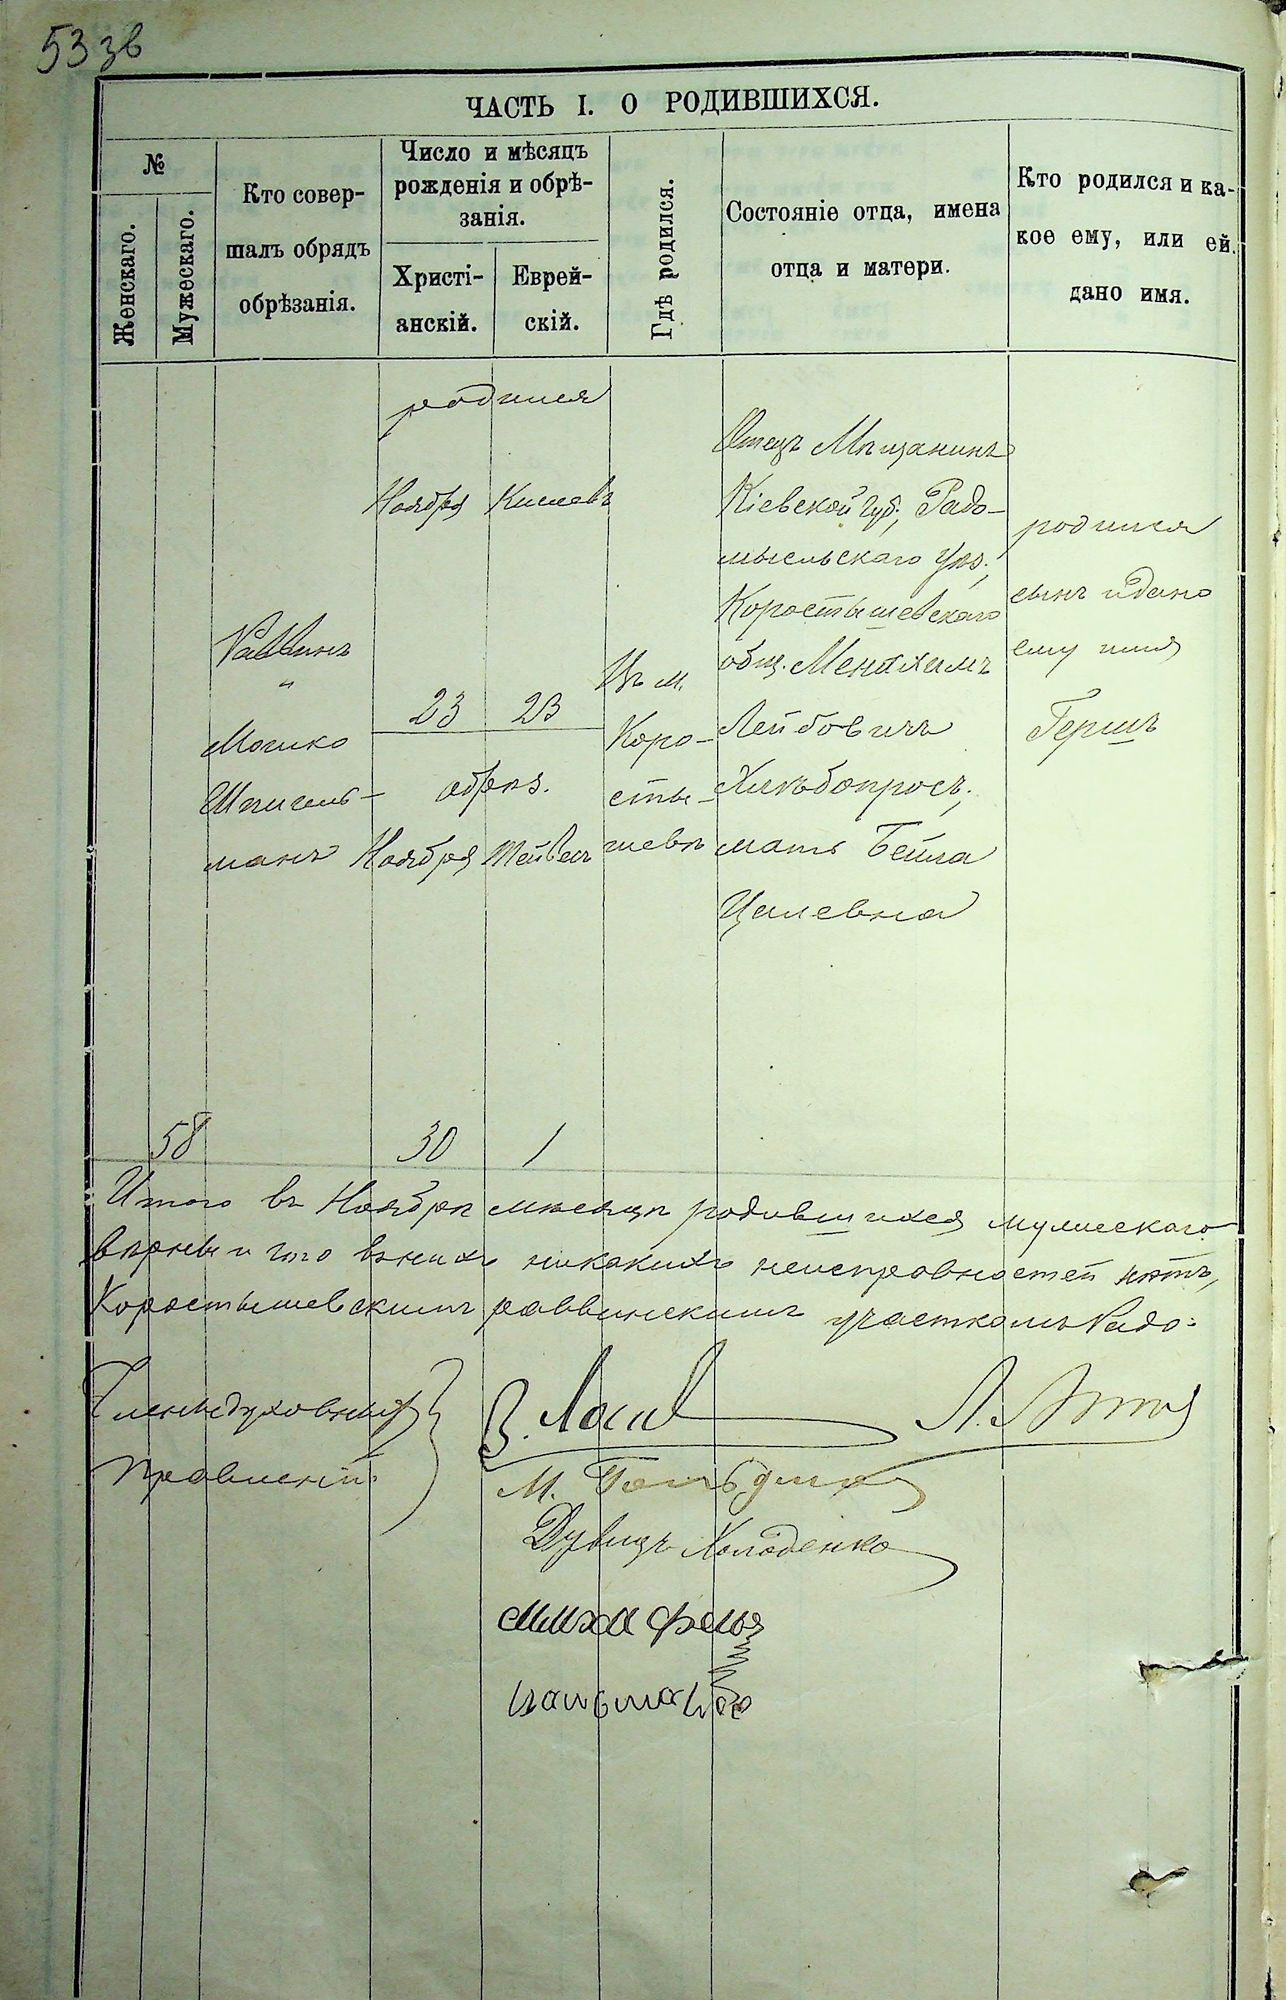 53 зв
ЧАСТЬ I. О РОДИВШИХСЯ.
№
Женскаго.
Мужескаго.
Кто совер-
шалъ обрядъ
обрѣзанія.
Число и мѣсяцъ
рожденія и обрѣ-
занія.
Христі-
анскій.
Еврей-
скій.
Гдѣ родился.
Состояніе отца, имена
отца и матери.
Кто родился и ка-
кое ему, или ей
дано имя.
58
Раввинъ
"
Мошко
Шпигель-
манъ
родился
Ноября
23
обрѣз.
Ноября
30
Кислевъ
23
Тейвесъ
1
Въ м.
Коро-
сты-
шевѣ
Отецъ Мѣщанинъ
Кіевской губ., Радо-
мысльскаго уѣз.,
Коростышевскаго
общ. Менахимъ
Лейбовичъ
Хлѣбопросъ,
мать Бейла
Цалевна
родился
сынъ и дано
ему имя
Гершъ
Итого въ Ноябрѣ мѣсяцѣ родившихся мужескаго
вѣрны и что въ нихъ никакихъ неисправностей нѣтъ,
Коростышевскимъ раввинскимъ участкомъ Радо-
Члены духовныхъ
правленій:
М.
Холоденко